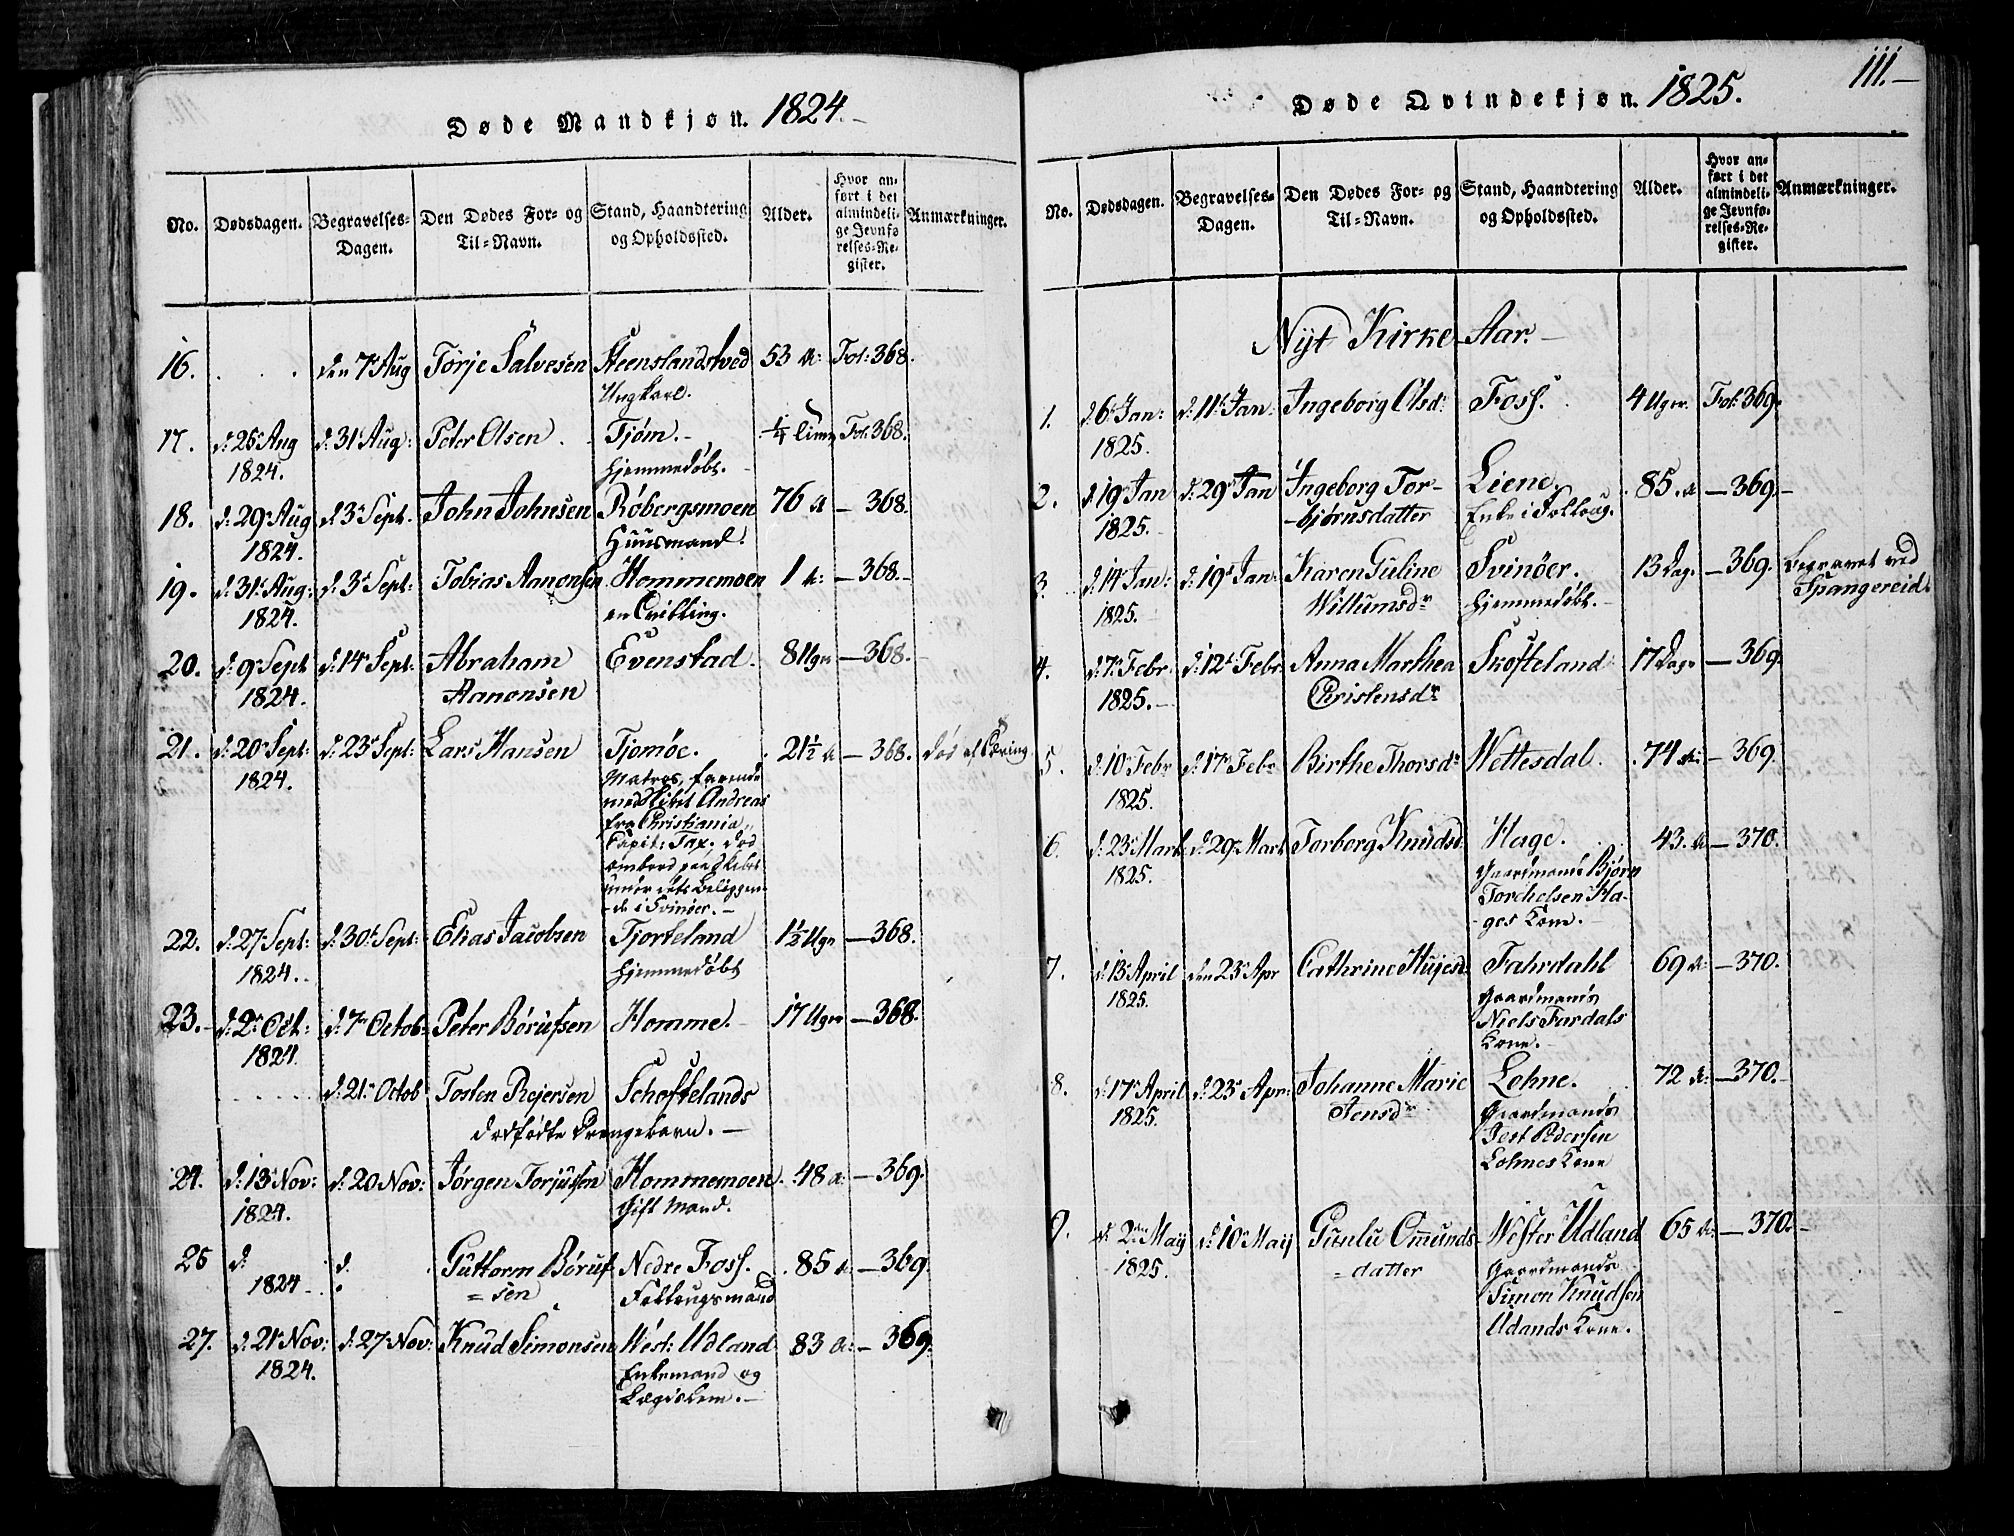 Døde Mandkjøn. 1824.
No. Dødsdagen. Begravelses-Dagen. Den Dødes For- og Til-Navn. Stand, Haandtering og Opholdssted. Alder. Hvor anført i det almindelige Jevnførelses-Register. Anmærkninger.
16. den 7 Aug Torje Salvesen Steenslandsqved 53 A: Fol: 368.
Ungkarl.
17. d: 26 Aug d: 31 Aug: Peter Olsen Tjøm. ¼ Time Fol: 368.
1824. Hjemmedøbt.
18. d: 29 Aug d: 3 Sept. John Johnsen Røbergsmoen 76 A — 368.
1824. Huusmand.
19. d: 31 Aug: d: 3 Sept: Tobias Aanonsen Hommemoen 1 A: — 368.
1824. en Tvilling.
20. d: 9 Sept d: 14 Sept: Abraham Evenstad. 8 Ugr — 368.
1824. Aanonsen
21. d: 20 Sept: d: 23 Sept: Lars Hansen Tjomøe. 21½ A — 368. død af Tæring
1824. Matros, farende
med Skibet Andreas
fra Christiania,
Capit: Fax. død
ombord paa Skibet
under dets Beliggen-
de i Svinøer.
22. d: 27 Sept: d: 30 Sept: Elias Jacobsen Tjorteland 1½ Ugr — 368.
1824. Hjemmedøbt
23. d: 2 Oct: d: 7 Octob: Peter Børufsen Homme. 17 Ugr — 368.
1824.
d: 21 Octob Tosten Rejersen Schoftelands
dødfødte Drengebarn.
24. d: 13 Nov: d: 20 Nov: Jørgen Torjussen Hommemoen. 48 A: — 369.
1824. Gift Mand.
25 d d. Guttorm Børuf Nedre Foss. 85 A: — 369.
1824 = sen Follaugsmand
27. d: 21 Nov: d: 27 Nov: Knud Simonsen West: Udland 83 A: — 369.
1824. Enkemand og
Lægdslem.
111.
Døde Qvindekjøn. 1825.
No. Dødsdagen. Begravelses-Dagen. Den Dødes For- og Til-Navn. Stand, Haandtering og Opholdssted. Alder. Hvor anført i det almindelige Jevnførelses-Register. Anmærkninger.
Nyt Kirke-Aar.
1. d: 6 Jan: d: 11 Jan: Ingeborg Olsd: Foss. 4 Uger. Fol: 369.
1825.
2. d: 19 Jan d: 29 Jan Ingeborg Tor- Liene. 85. A — 369.
1825. -bjørnsdatter Enke i Follaug.
3. d: 14 Jan: d: 19 Jan: Karen Guline Svinøer. 13 Dag. — 369. Begravet ved
1825. Willumsdr Hjemmedøbt. Spangereid.
4. d: 7 Febr: d: 12 Febr Anna Marthea Skofteland 17 Dage — 369.
1825. Christensdr
5. d: 10 Febr d: 17 Febr Birthe Thorsdr Wettesdal. 74 A: — 369.
1825.
6. d: 23 Mart d: 29 Mart Torborg Knudsd. Hage. 43. A — 370.
1825. Gaardmands Bjørn
Torchelsen Ha-
ges Kone.
7. d: 13 April den 23 Apr Cathrine Hujesd: Fahrdahl 69 A — 370.
1825. Gaardmands
Niels Fardals
Kone.
8. d: 17 April d: 23 Apr: Johanne Marie Lohne. 72 A: — 370.
1825. Jensdr Gaardmands
Jest Pedersen
Lohnes Kone
9. d. 2 May d: 10 May Gunlu Omunds- Wester Udland 65 A: — 370.
1825. = datter Gaardmands
Simon Knudsen
Udlands Kone.